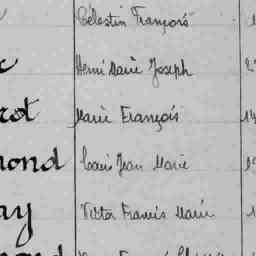 Célestin François
Henri Marie Joseph
rot Marie François
mond Louis Jean Marie
ay Victor Francis Marie